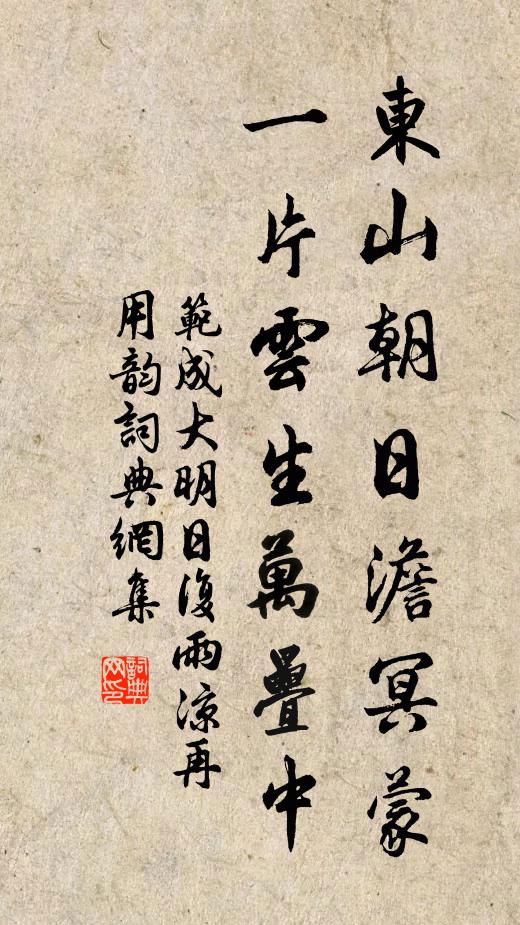 東山朝日澹冥蒙
一片雲生萬疊中
範成大明日復雨凉再
用韵詞典網集
詞典
网印